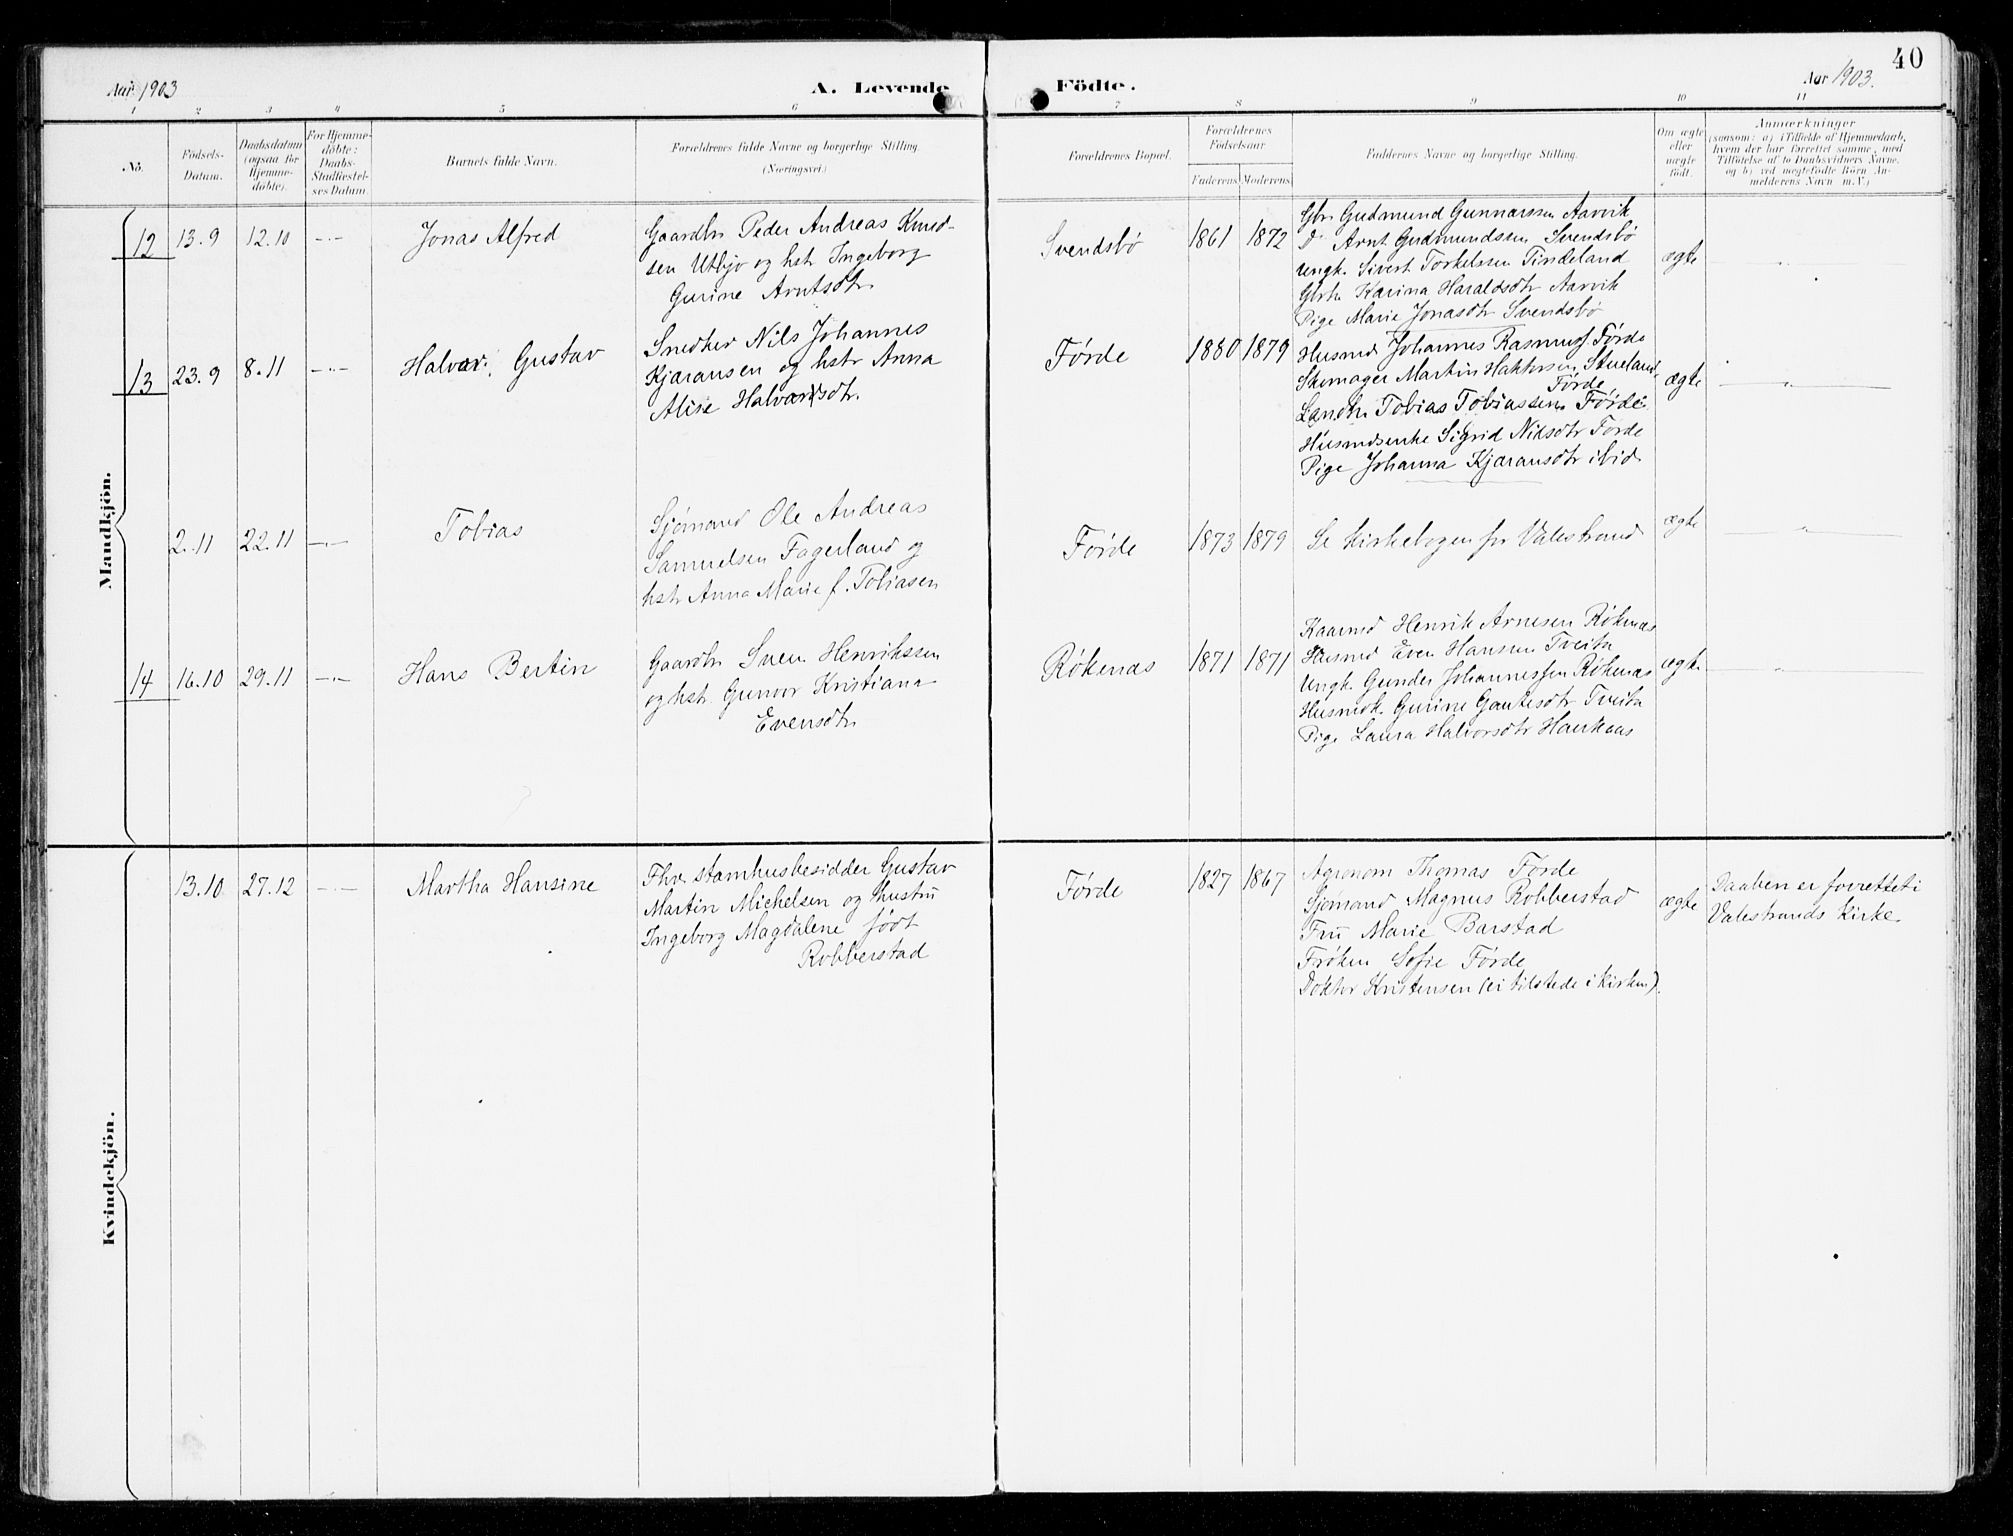 40
Aar 1903
A. Levende
Födte.
Aar 1903.
1 2 3 4 5 6 7 8 9 10 11
No.
Födsels-
Datum.
Daabsdatum
(ogsaa for
Hjemme-
döbte).
For Hjemme-
döbte:
Daabs-
Stadfæstel-
ses Datum.
Barnets fulde Navn.
Forældrenes fulde Navne og borgerlige Stilling.
(Næringsvei.)
Forældrenes Bopæl.
Forældrenes
Födselsaar
Faderens Moderens
Faddernes Navne og borgerlige Stilling.
Om ægte
eller
uægte
födt.
Anmærkninger
(saasom: a) i Tilfælde af Hjemmedaab,
hvem der har forrettet samme, med
Tilföielse af to Daabsvidners Navne,
og b) ved uægtefödte Börn An-
melderens Navn m. V.)
Mandkjön.
12 13.9 12.10 -"-
Jonas Alfred
Gaardbr Peder Andreas Knud-
sen Utbjo og hstr Ingeborg
Gurine Arntsdtr
Svendsbö
1861 1872
Gbr Gudmund Gunnarssen Aarvik
D. Arnt Gudmundssen Svendsbö
Ungk. Sivert Torkelssen Tindeland
Gbrk Karina Haraldsdtr Aarvik
Pige Marie Jonasdtr Svendsbö
ægte
"
13 23.9 8.11 -"-
Halvar Gustav
Snedker Nils Johannes
Kjaransen og hstr Anna
Alise Halvardsdtr.
Førde
1880 1879
Husmd Johannes Rasmuss. Førde
Skomager Martin Stueland,
Førde
Landh. Tobias Tobiassen Førde
Husmdsenke Sigrid Nilsdtr Førde
Pige Johanna Kjaransdtr ibid
ægte
"
2.11 22.11 -"-
Tobias
Sjømand Ole Andreas
Samuelsen Fagerland og
hstr Anna Marie f. Tobiasen
Førde
1873 1879
Se kirkebogen for Valestrand
ægte
"
14 16.10 29.11 -"-
Hans Bertin
Gaardbr Sven Henrikssen
og hstr Gunvor Kristiana
Evensdtr
Røkenas
1871 1871
Kaarmd Henrik Arnesen Røkenæs
Husmd Even Hansen Tveita
Ungk. Gunder Johannessen Røkenæs
Husmdk. Gurine Gautesdtr Tveita
Pige Laura Halvorsdtr Haukaas
ægte
"
Kvindekjön.
13.10 27.12 -"-
Martha Hansine
Fhv. stamhusbesidder Gustav
Martin Michelsen og hustru
Ingeborg Magdalene født
Robberstad
Førde
1827 1867
Agronom Thomas Førde
Sjømand Magnus Robberstad
Fru Marie Barstad
Frøken Sofie Førde
Doktor Kristensen (ei tilstede i kirken).
ægte
Daaben er forrettet i
Valestrands Kirke